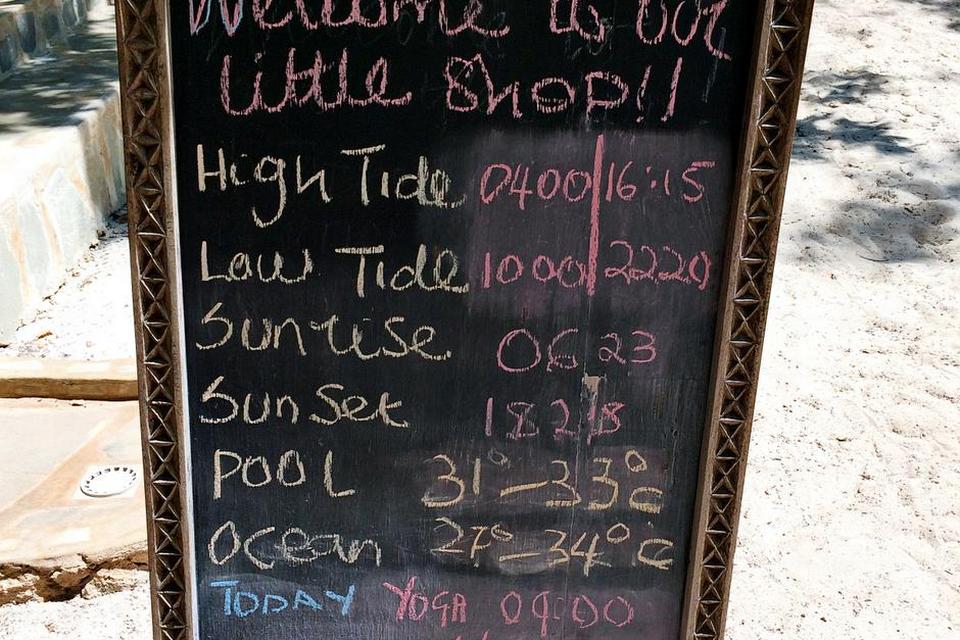 Welcome to our
little Shop!!
High Tide 0400 16:15
Low Tide 1000 2220
Sunrise 0623
Sunset 1828
POOL 31°-33°c
Ocean 27°-34°c
TODAY YOGA 09:00